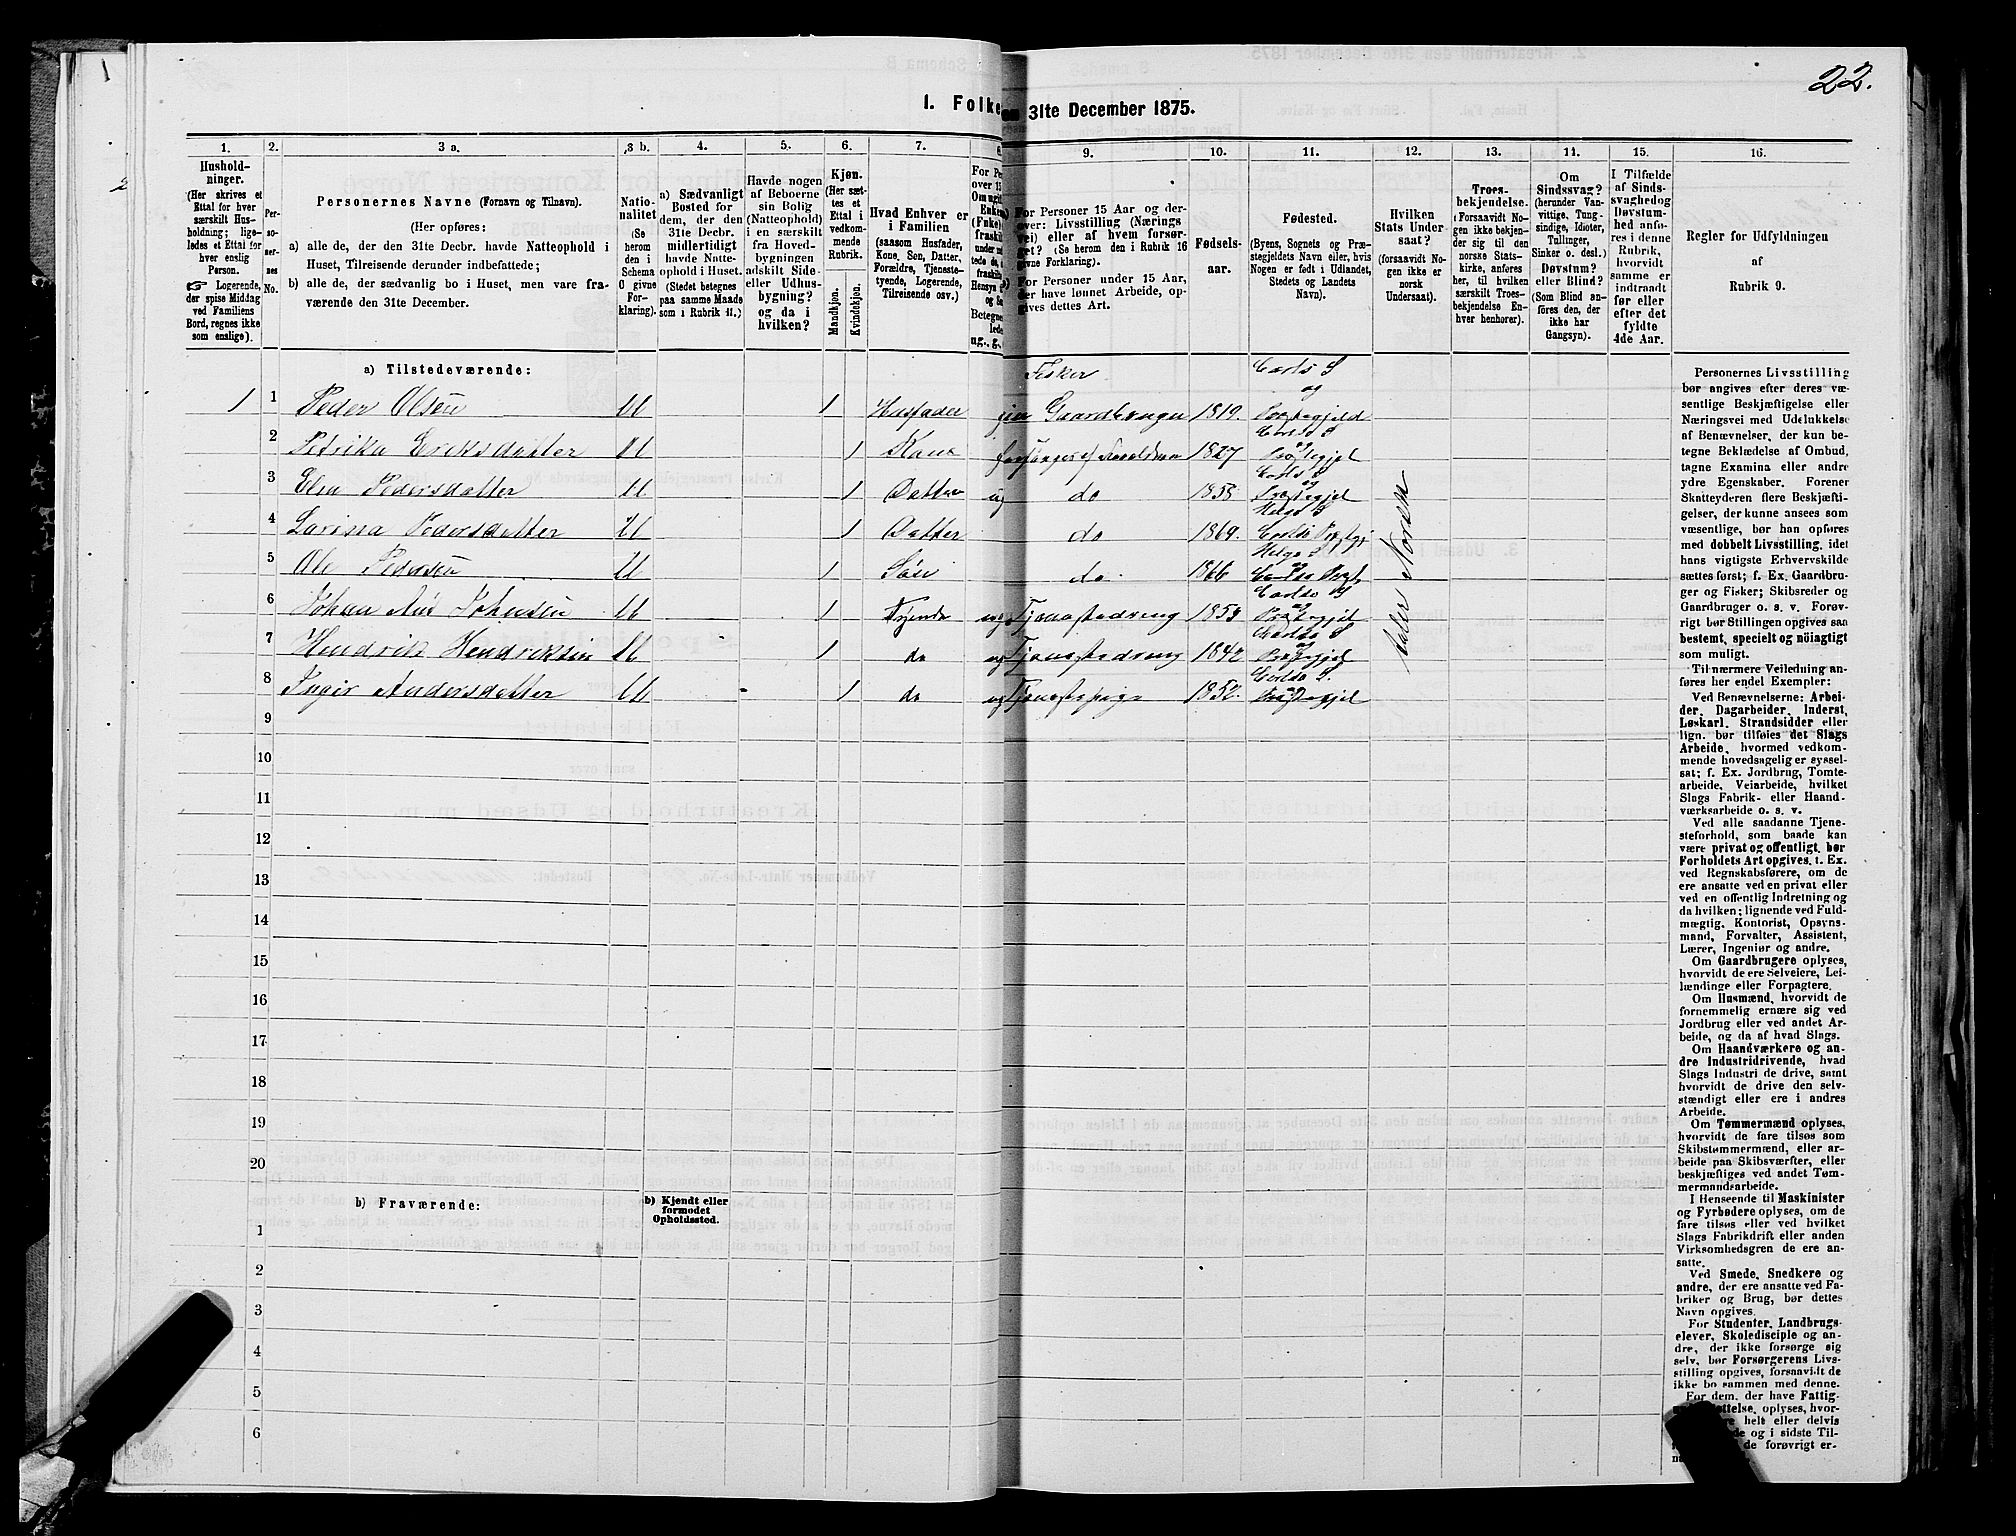 22.
1
2
1. Folke
en 31te December 1875.
1. 2. 3 a. 3 b. 4. 5. 6. 7. 8
9. 10. 11. 12. 13. 14. 15. 16.
Hushold-
ninger.
(Her skrives et
Ettal for hver
særskilt Hus-
holdning; lige-
ledes et Ettal for
hver enslig
Person.
Logerende,
der spise Middag
ved Familiens
Bord, regnes ikke
som enslige).
Per-
so-
ner-
nes
No.
Personernes Navne (Fornavn og Tilnavn).
(Her opføres:
a) alle de, der den 31te Decbr. havde Natteophold i
Huset, Tilreisende derunder indbefattede;
b) alle de, der sædvanlig bo i Huset, men vare fra-
værende den 31te December.)
Natio-
nalitet
(Se
herom
den i
Schema
C givne
For-
klaring).
a) Sædvanligt
Bosted for
dem, der den
31te Decbr.
midlertidigt
havde Natte-
ophold i Huset.
(Stedet betegnes
paa samme Maade
som i Rubrik 11.)
Havde nogen
af Beboerne
sin Bolig
(Natteophold)
i en særskilt
fra Hoved-
bygningen
adskilt Side-
eller Udhus-
bygning?
og da i
hvilken?
Kjøn.
(Her sæt-
tes et
Ettal i
vedkom-
mende
Rubrik.
Mandkjøn.
Kvindekjøn.
Hvad Enhver er
i Familien
(saasom Husfader,
Kone, Søn, Datter,
Forældre, Tjeneste-
tyende, Logerende,
Tilreisende osv.)
For Pe
over 15
Om ugift
Enkem
(Fnke)
fraskilt
under
tede
fraskil
Hensyn
og Se
Betegne
lede
ug., g.,
For Personer 15 Aar og der-
over: Livsstilling (Nærings
vei) eller af hvem forsør-
get? (Se herom den i Rubrik 16
givne Forklaring).
For Personer under 15 Aar,
der have lønnet Arbeide, op-
gives dettes Art.
Fødsels-
aar.
Fødested.
(Byens, Sognets og Præ-
stegjeldets Navn eller, hvis
Nogen er født i Udlandet,
Stedets og Landets
Navn).
Hvilken
Stats Under
saat?
(forsaavidt No-
gen ikke er
norsk
Undersaat).
Troes-
bekjendelse.
(Forsaavidt No-
gen ikke bekjen-
der sig til den
norske Stats-
kirke, anføres
her, til hvilken
særskilt Troes-
bekjendelse En-
hver henhører).
Om
Sindssvag?
(herunder Van-
vittige, Tung-
sindige, Idioter,
Tullinger,
Sinker o. desl.)
Døvstum?
eller Blind?
(Som Blind an-
føres den, der
ikke har
Gangsyn).
I Tilfælde
af Sinds-
svaghed og
Døvstum-
hed anfø-
res i denne
Rubrik,
hvorvidt
samme er
indtraadt
før eller
efter det
fyldte
4de Aar.
Regler for Udfyldningen
af
Rubrik 9.
a) Tilstedeværende:
1 1 Peder Olsen U 1 Husfader Fisker Gaardbruger 1819. Carlsø S og Præstegjeld
2 Petrika Eriksdatter U 1 Kone 1827 Carlsø S og Præstegjel
3 Elen Pedersdatter U 1 Datter ug do 1858 Carlsø S og Præstegjel
4 Larina Pedersdatter U 1 Datter do 1869. Helgø S Carlsø Præstgj
5 Ole Pedersen U 1 Søn do 1866 Helgø S og Carlsø Præst
6 Johan Johnsen U 1 Tyende ug Tjenestedreng 1853 Carlsø S og Præstegjel
7 Hendrik Hendriksen U 1 do ug Tjenestedreng 1842 Carlsø S og Præstegjel
8 Ingir Andersdatter U 1 do ug Tjenestepige 1852. Carlsø S. og Præstegjel
Norske
9
10
11
12
13
14
15
16
17
18
19
20
b) Fraværende:
b) Kjendt eller
formodet
Opholdssted.
1
2
3
4
5
6
Personernes Livsstilling
bør angives efter deres væ-
sentlige Beskjæftigelse eller
Næringsvei med Udelukkelse
af Benævnelser, der kun be-
tegne Beklædelse af Ombud,
tagne Examina eller andre
ydre Egenskaber. Forener
Skatteyderen flere Beskjæfti-
gelser, der kunne ansees som
væsentlige, bør han opføres
med dobbelt Livsstilling, idet
hans vigtigste Erhvervskilde
sættes først; f. Ex. Gaardbru-
ger og Fisker; Skibsreder og
Gaardbruger o. s. v. Forøv-
rigt bør Stillingen opgives saa
bestemt, specielt og nöiagtigt
som muligt.
Til nærmere Veiledning an-
føres her endel Exempler:
Ved Benævnelserne: Arbei-
der, Dagarbeider, Inderst,
Løskarl, Strandsidder eller
lign. bør tilføies det Slags
Arbeide, hvormed vedkom-
mende hovedsagelig er syssel-
sat; f. Ex. Jordbrug, Tomte-
arbeide, Veiarbeide, hvilket
Slags Fabrik- eller Haand-
værksarbeide o. s. v.
Ved alle saadanne Tjene-
steforhold, som baade kan
være privat og offentligt, bør
Forholdets Art opgives, t. Ex.
ved Regnskabsførere, om de
ere ansatte ved en privat eller
ved en offentlig Indretning og
da hvilken; lignende ved Fuld-
mægtig, Kontorist, Opsyns-
mand, Forvalter, Assistent,
Lærer, Ingeniør og andre.
Om Gaardbrugere oplyses,
hvorvidt de ere Selveiere, Lei-
lændinge eller Forpagtere.
Om Husmænd, hvorvidt de
fornemmelig ernære sig ved
Jordbrug eller ved andet Ar-
beide, og da af hvad Slags.
Om Haandværkere og an-
dre Industridrivende, hvad
Slags Industri de drive, samt
hvorvidt de drive den selv-
stændigt eller ere i andres
Arbeide.
Om Tømmermænd oplyses,
hvorvidt de fare tilsøs som
Skibstømmermænd, eller ar-
beide paa Skibsværfter, eller
beskjæftiges ved andet Tøm-
mermandsarbeide.
I Henseende til Maskinister
og Fyrbødere oplyses, om de
fare tilsøs eller ved hvilket
Slags Fabrikdrift eller anden
Virksomhedsgren de ere an-
satte.
Ved Smede, Snedkere og
andre, der ere ansatte ved Fa-
briker og Brug, bør dettes
Navn opgives.
For Studenter, Landbrugs-
elever, Skoledisciple og an-
dre, der ikke forsørge sig
selv, bør Forsørgerens Livs-
stilling opgives, forsaavidt de
ikke bo sammen med denne.
For dem, der have Fattig-
ttelse, oplyses, hvor-
helt eller delvis
de og i sidste Til-
de forøvrigt er-